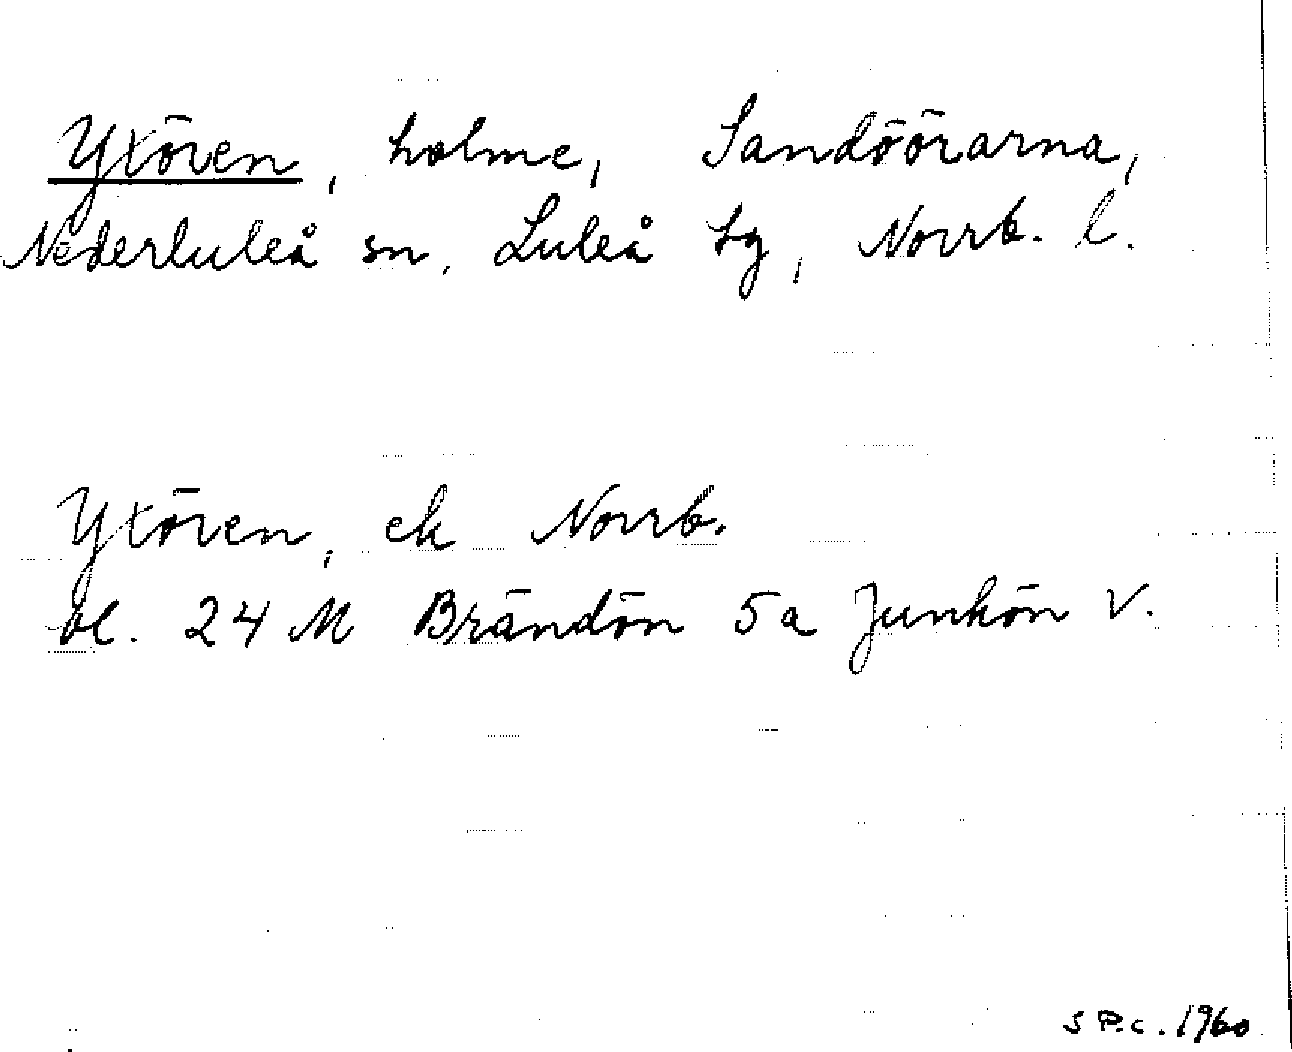 Yxören, holme, Sandöörarna,
Nederluleå sn, Luleå tg, Norrb. l.
Yxören, ek Norrb.
bl. 24 M Brändön 5a Junkön V.
S P.C. 1960